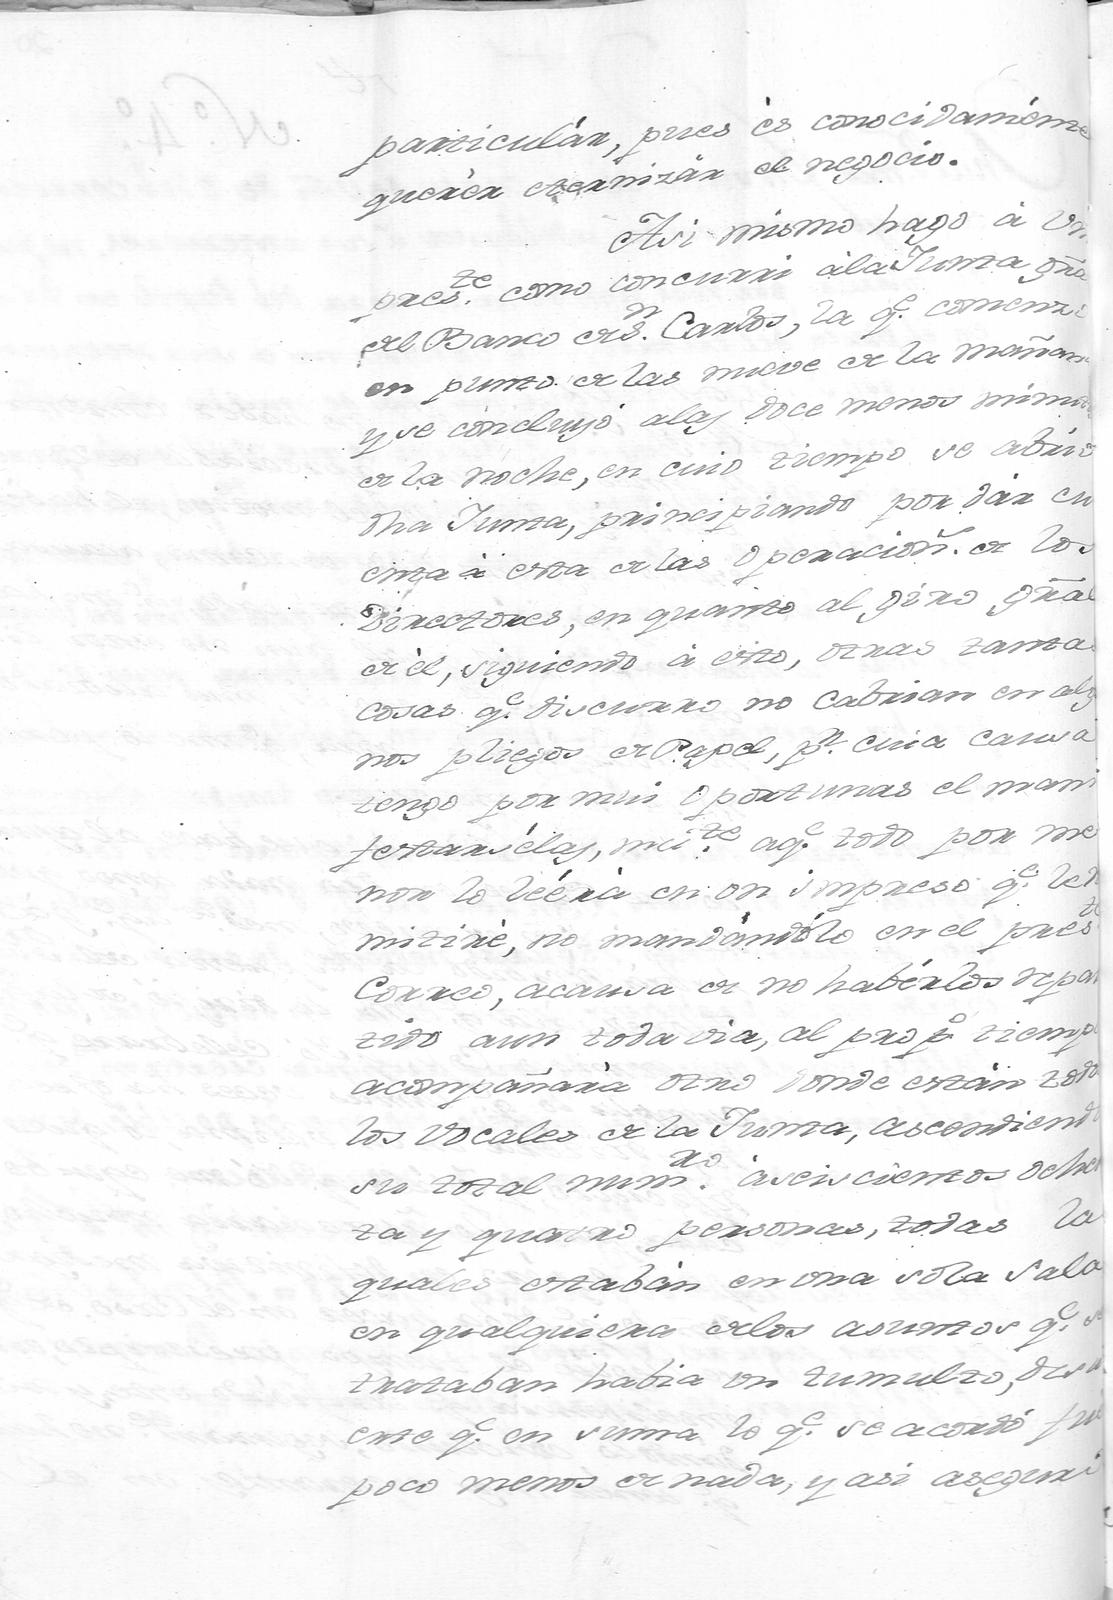 particulár, pues és conocidaménte
querér eternizár el negocio.
Asi mismo hago á Vm
pres.te como concurri ála Junta gñal
del Banco de S.n Carlos, la q.e comenzó
en punto de las nueve de la mañana
y se concluyó alas doce menos minutos
de la noche, en cuio tiempo se abrió
dha Junta, principiando por dár cu
enta á esta de las Operacioñ. de los
Directores, en quanto al giro gñal
de él, siguiendo á esto, otras tantas
cosas q.e discurro no cabrian en algu
nos pliegos de Papel, p.r cuia causa
tengo por mui oportunas el mani
festarsélas, mi.te aq.e todo por me
nor lo léerá en un impreso q.e le re
mitiré, no mandándolo en el pres.te
Correo, acausa de no habérlos repar
tido aun toda via, al prop.o tiempo
acompañará otro donde están todos
los Vocales de la Junta, ascendiendo
su total num.ro á seiscientos ochen
ta y quatro personas, todas las
quales estabán en una sóla Sala
en qualquiera delos asuntos q.e se
trataban habia un tumulto, de su
erte q.e en suma lo q.e se acordó fué
poco menos de nada, y asi aseguri